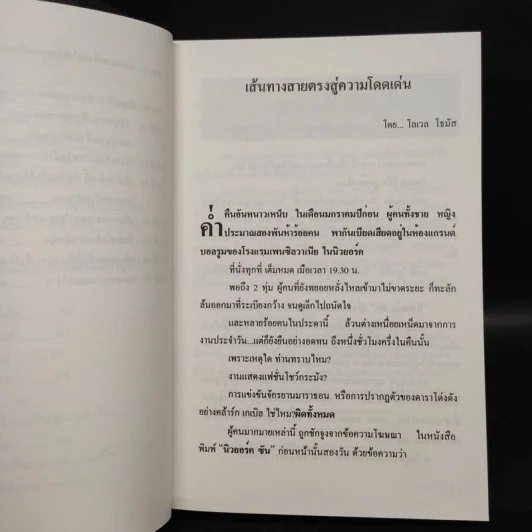 เส้นทางสายตรงสู่ความโดดเด่น
โดย... โลเวล โธมัส
ค่ำคืนอันหนาวเหน็บ ในเดือนมกราคมปีก่อน ผู้คนทั้งชาย หญิง
ประมาณสองพันห้าร้อยคน พากันเบียดเสียดอยู่ในห้องแกรนด์
บอลรูมของโรงแรมเพนซิลวาเนีย ในนิวยอร์ค
ที่นั่งทุกที่ เต็มหมด เมื่อเวลา 19.30 น.
พอถึง 2 ทุ่ม ผู้คนที่ยังทยอยหลั่งไหลเข้ามาไม่ขาดระยะ ก็ทะลัก
ล้นออกมาที่ระเบียงกว้าง จนดูเล็กไปถนัดใจ
และหลายร้อยคนในประดานี้ ล้วนต่างเหนื่อยเหน็ดมาจากการ
งานประจำวัน...แต่ก็ยังยืนอย่างอดทน ถึงหนึ่งชั่วโมงครึ่งในคืนนั้น
เพราะเหตุใด ท่านทราบไหม?
งานแสดงแฟชั่นโชว์กระมัง?
การแข่งขันจักรยานมาราธอน หรือการปรากฏตัวของดาราโด่งดัง
อย่างคล้าร์ก เกเบิล ใช่ไหม?ผิดทั้งหมด
ผู้คนมากมายเหล่านี้ ถูกชักจูงจากข้อความโฆษณา ในหนังสือ
พิมพ์ "นิวยอร์ค ซัน" ก่อนหน้านั้นสองวัน ด้วยข้อความว่า